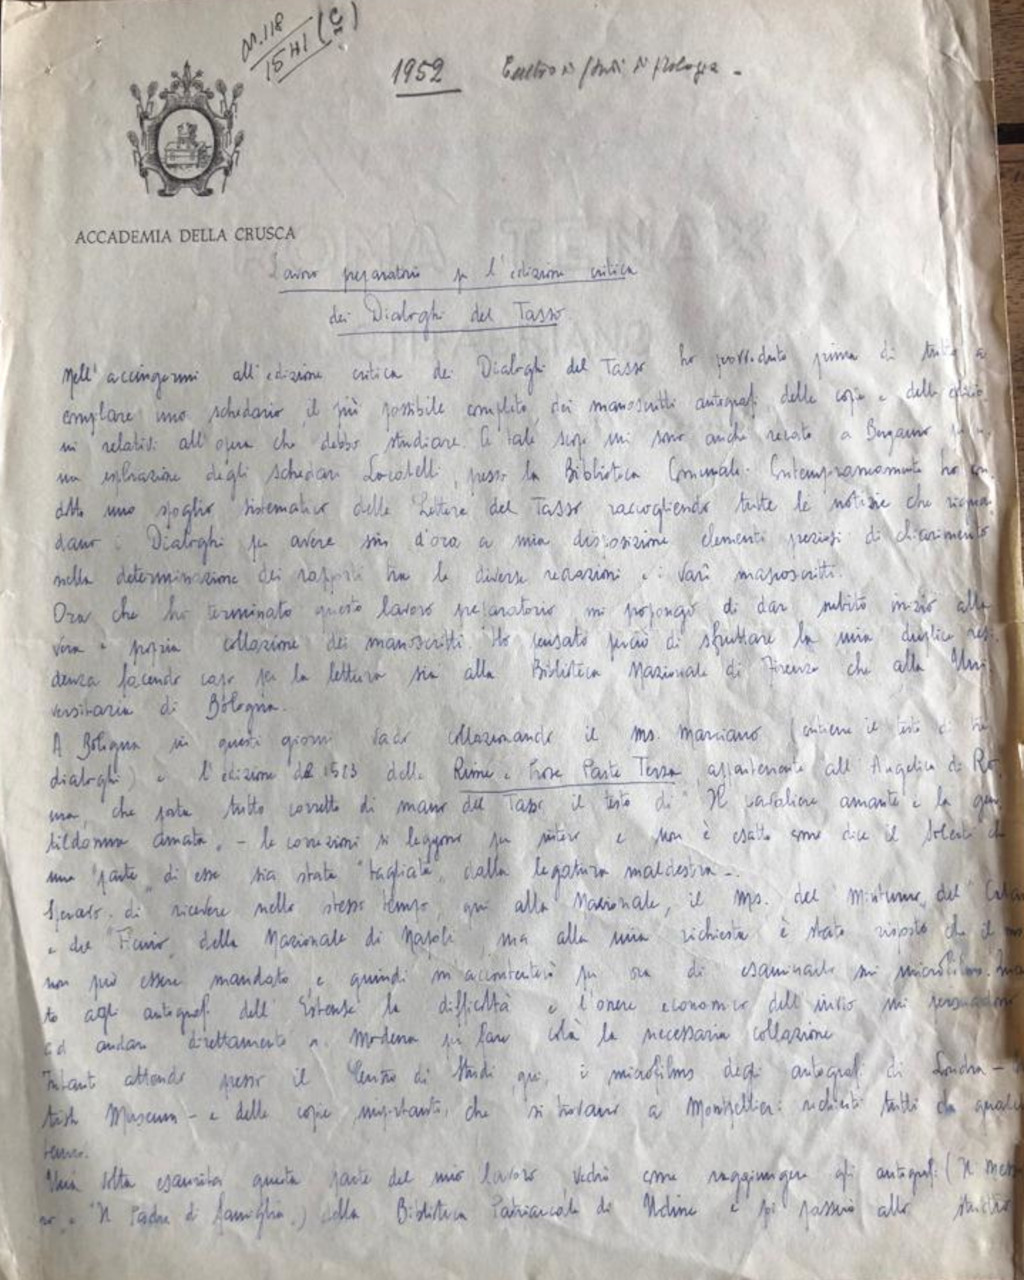 N. 118
1541 (C)
1952 Centro di studi di filologia -
ACCADEMIA DELLA CRUSCA
Lavoro preparatorio per l'edizione critica
dei Dialoghi del Tasso
Nell'accingermi all'edizione critica dei Dialoghi del Tasso ho provveduto prima di tutto a
compilare uno schedario, il più possibile completo, dei manoscritti autografi, delle copie e delle edizio
ni relativi all'opera che debbo studiare. A tale scopo mi sono anche recato a Bergamo per
una esplorazione degli schedari Locatelli, presso la Biblioteca Comunale. Contemporaneamente ho con
dotto uno spoglio sistematico delle "Lettere" del Tasso raccogliendo tutte le notizie che riguar
dano i Dialoghi per avere sin d'ora a mia disposizione elementi preziosi di chiarimento
nella determinazione dei rapporti tra le diverse redazioni e i varî manoscritti.
Ora che ho terminato questo lavoro preparatorio mi propongo di dar subito inizio alla
vera e propria collazione dei manoscritti. Ho pensato perciò di sfruttare la mia duplice resi
denza facendo capo per la lettura sia alla Biblioteca Nazionale di Firenze che alla Uni
versitaria di Bologna.
A Bologna in questi giorni vado collazionando il ms. Marciano (contiene il testo di tre
dialoghi) e l'edizione del 1583 delle Rime e Prose Parte Terza, appartenente all'Angelica di Ro
ma, che porta tutto corretto di mano del Tasso il testo di "Il cavaliere amante e la gen
tildonna amata" - le correzioni si leggono per intero e non è esatto come dice il Solerti che
una "parte" di esse sia stata "tagliata" dalla legatura maldestra -.
Speravo di ricevere nello stesso tempo, qui alla Nazionale, il ms. del Minturno, del Cataneo
e del "Ficino" della Nazionale di Napoli ma alla mia richiesta è stato risposto che il ms
non può essere mandato e quindi mi accontenterò per ora di esaminarlo sui microfilms. Quan
to agli autografi dell'Estense la difficoltà e l'onere economico dell'invio mi persuadono
ad andare direttamente a Modena per fare colà la necessaria collazione.
Intanto attendo presso il Centro di Studi qui, i microfilms degli autografi di Londra - Bri
tish Museum - e delle copie importanti che si trovano a Montpellier: richiesti tutti da qualche
tempo.
Una volta esaurita questa parte del mio lavoro vedrò come raggiungere gli autografi ("Il Messag
ro" e "Il Padre di famiglia") della Biblioteca Patriarcale di Udine e poi passerò allo studio